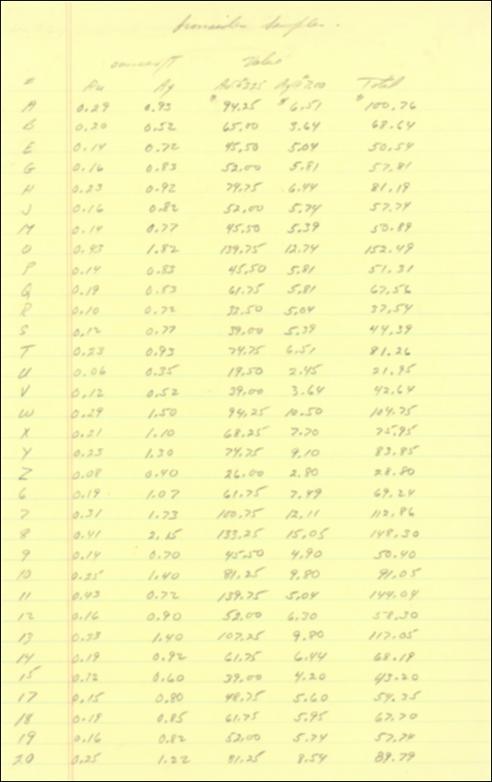 Samples.
Value
# Au Ag Au $325 Ag $7.00 Total
A 0.29 0.93 $94.25 $6.51 $100.76
B 0.20 0.52 65.00 3.64 68.64
E 0.14 0.72 45.50 5.04 50.54
G 0.16 0.83 52.00 5.81 57.81
H 0.23 0.92 74.75 6.44 81.19
J 0.16 0.82 52.00 5.74 57.74
M 0.14 0.77 45.50 5.39 50.89
O 0.43 1.82 139.75 12.74 152.49
P 0.14 0.83 45.50 5.81 51.31
Q 0.19 0.83 61.75 5.81 67.56
R 0.10 0.72 32.50 5.04 37.54
S 0.12 0.77 39.00 5.39 44.39
T 0.23 0.93 74.75 6.51 81.26
U 0.06 0.35 19.50 2.45 21.95
V 0.12 0.52 39.00 3.64 42.64
W 0.29 1.50 94.25 10.50 104.75
X 0.21 1.10 68.25 7.70 75.95
Y 0.23 1.30 74.75 9.10 83.85
Z 0.08 0.40 26.00 2.80 28.80
6 0.19 1.07 61.75 7.49 69.24
7 0.31 1.73 100.75 12.11 112.86
8 0.41 2.15 133.25 15.05 148.30
9 0.14 0.70 45.50 4.90 50.40
10 0.25 1.40 81.25 9.80 91.05
11 0.43 0.72 139.75 5.04 144.04
12 0.16 0.90 52.00 6.30 58.30
13 0.33 1.40 107.25 9.80 117.05
14 0.19 0.92 61.75 6.44 68.19
15 0.12 0.60 39.00 4.20 43.20
17 0.15 0.80 48.75 5.60 54.35
18 0.19 0.85 61.75 5.95 67.70
19 0.16 0.82 52.00 5.74 57.74
20 0.25 1.22 81.25 8.54 89.79